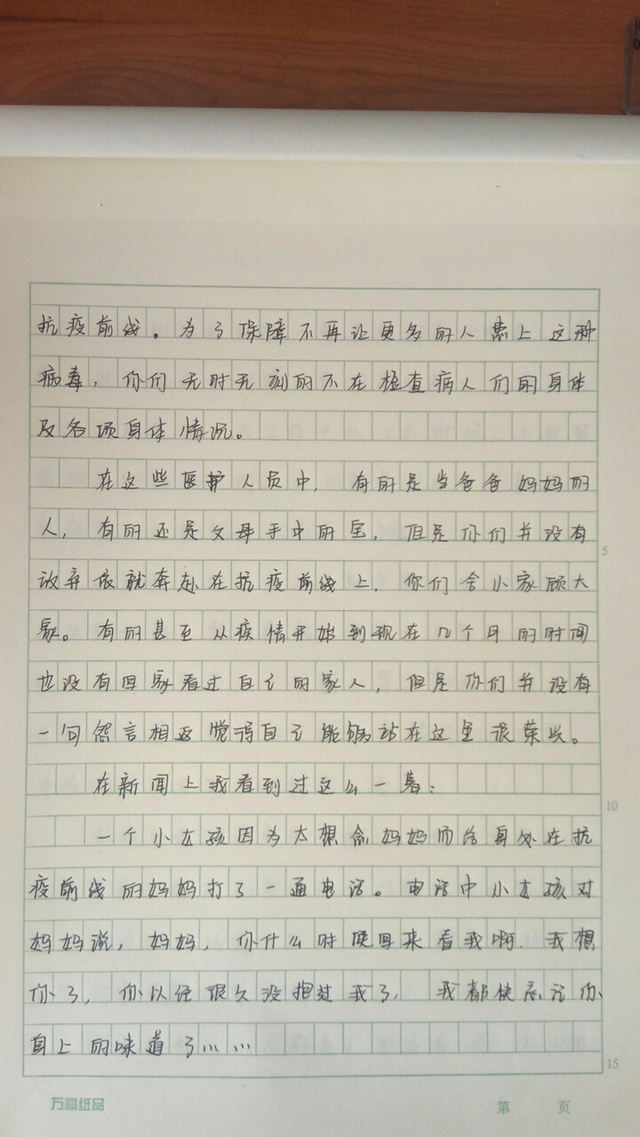 抗疫前线。为了保障不再让更多的人患上这种
病毒，你们无时无刻的不在检查病人们的身体
及各项身体情况。
在这些医护人员中，有的是当爸爸妈妈的
人，有的还是父母手中的宝，但是你们并没有
放弃依就奔赴在抗疫前线上，你们舍小家顾大
家。有的甚至从疫情开始到现在几个月的时间
也没有回家看过自己的家人，但是你们并没有
一句怨言相返觉得自己能够站在这里很荣兴。
在新闻上我看到过这么一幕：
一个小女孩因为太想念妈妈而给身处在抗
疫前线的妈妈打了一通电话。电话中小女孩对
妈妈说，妈妈，你什么时候回来看我啊，我想
你了，你以经很久没抱过我了，我都快忘记你
身上的味道了……
5
10
15
万和纸品
第 页